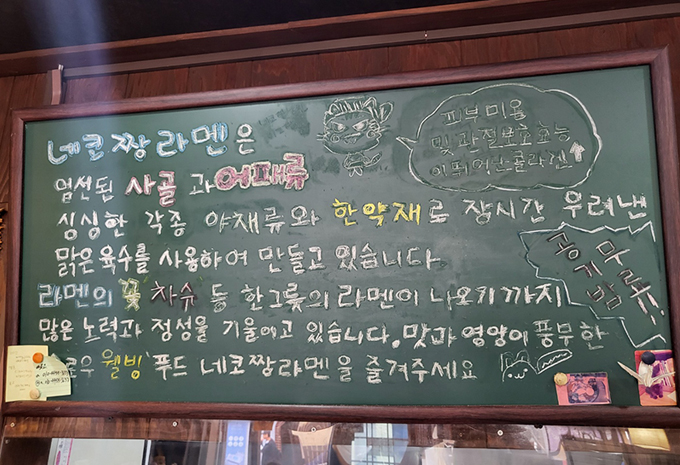 네코짱라멘은
엄선된 사골과 어패류
싱싱한 각종 야채류와 한약재로 장시간 우려낸
맑은 육수를 사용하여 만들고 있습니다
라멘의 꽃 차슈 등 한그릇의 라멘이 나오기까지
많은 노력과 정성을 기울이고 있습니다. 맛과 영양이 풍부한
로우 웰빙 푸드 네코짱라멘을 즐겨주세요
피부미용
및 관절로효효능
이뛰어난콜라겐↑
무료!!
공기밥